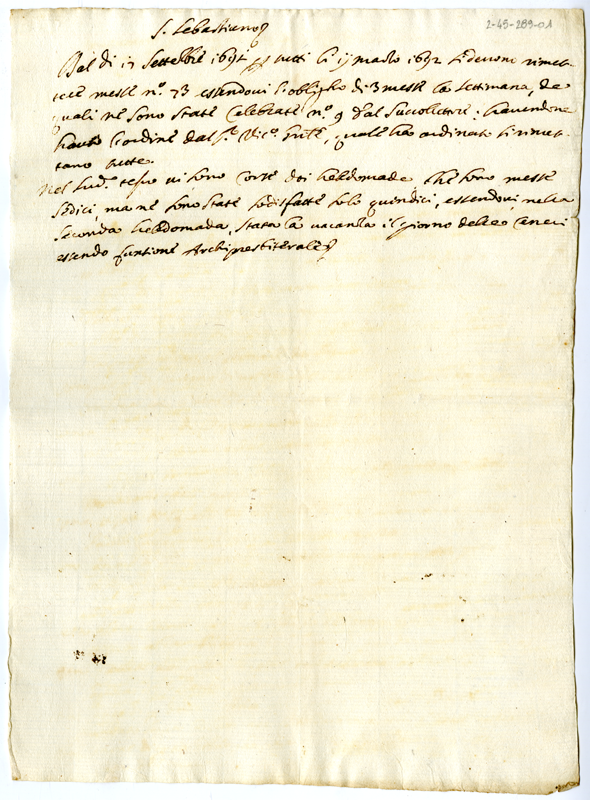 S. Sebastiano
2-45-289-01
Dal di 17 Settembre 1691 per tutti li 17 marzo 1692 si devono rimet-
tere messe n.º 73 essendovi l'obligho di 3 messe la settimana, de
quali ne sono state celebrate n.º 9 dal Succollettore; havendone
havuto l'ordine dal Vic.º quale ha ordinato si rimet-
tano tutte.
Nel Sud.º tempo vi sono corse doi hebdomade che sono messe
sedici, ma ne sono state sodisfatte solo quindici, essendovi nella
seconda hebdomada, stata la vacanza il giorno delle Ceneri
essendo funtione Archipresbiterale